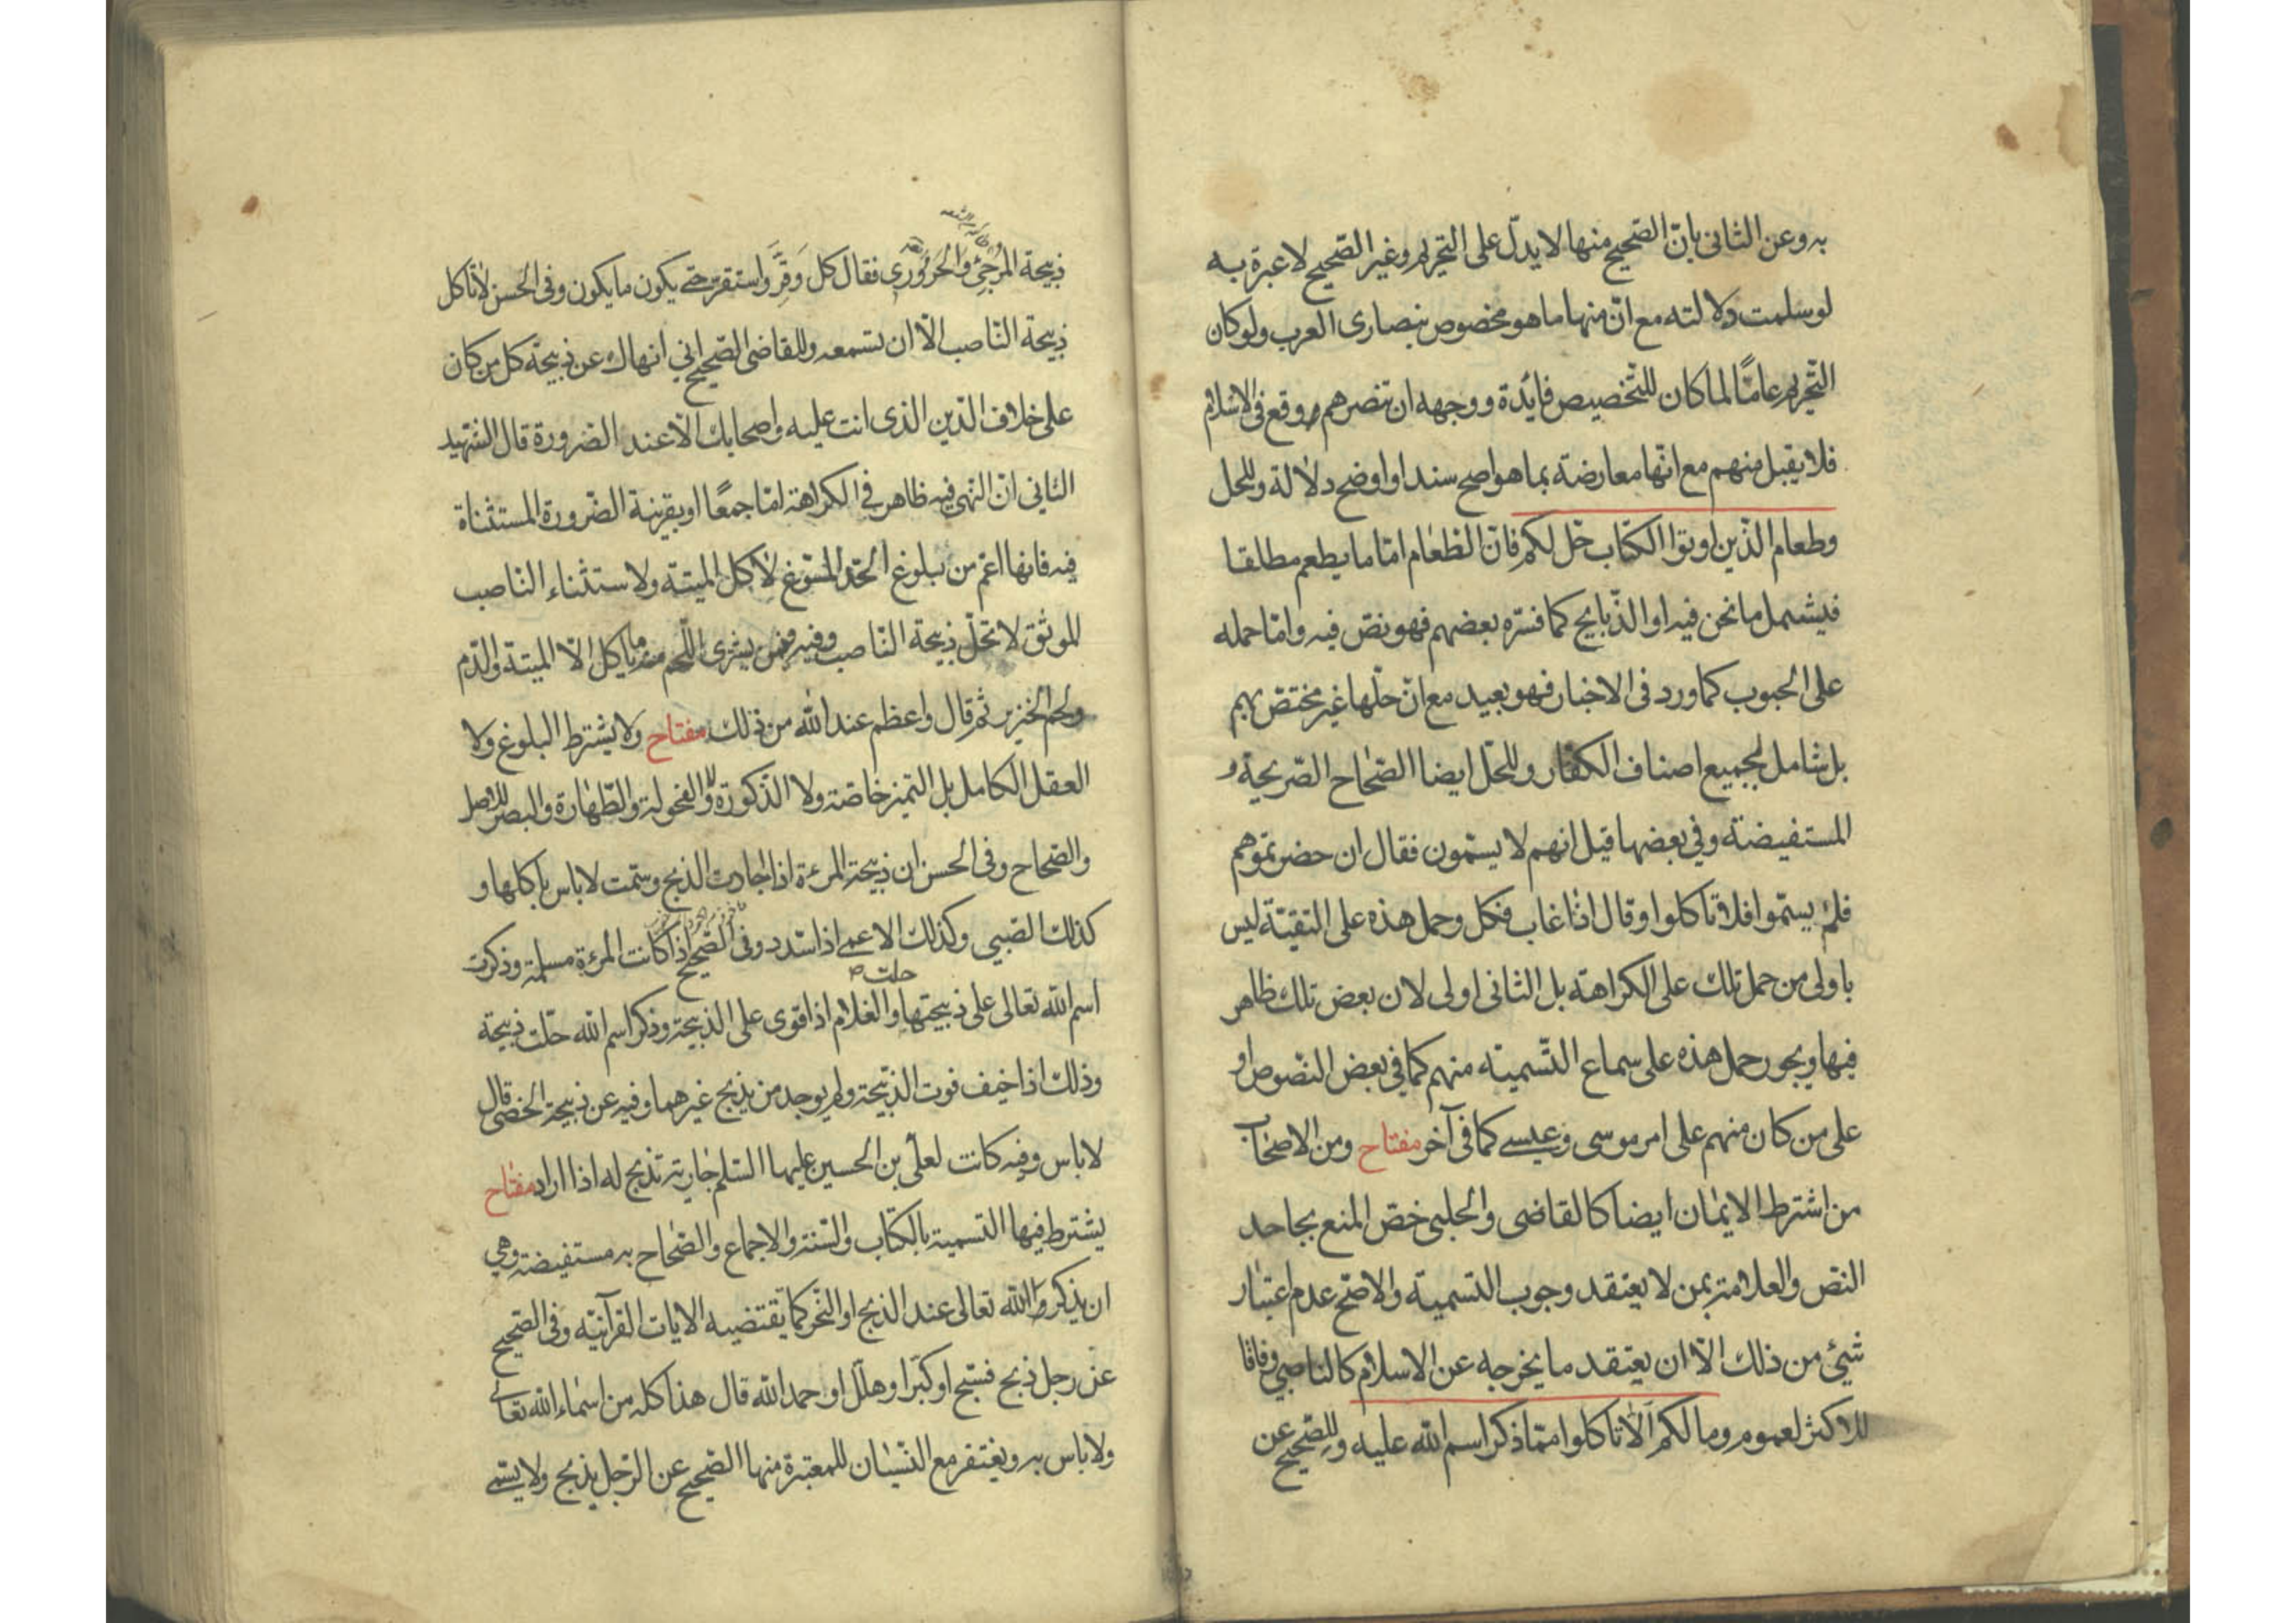 به وعن الثاني بانّ الصّحيح منها لا يدلّ على التحريم وغير الصّحيح لا عبرة به
لو سلمت دلالته مع انّ منها ما هو مخصوص بنصارى العرب ولو كان
التّحريم عامّا لما كان للتّخصيص فايدة ووجهه ان تنصرهم وقع في الاسلام
فلا يقبل منهم مع انّها معارضة بما هو اصح سندا واوضح دلالة وللحل
وطعام الذّين اوتوا الكتاب حلّ لكم فانّ الطّعام امّا ما يطعم مطلقا
فيشمل ما نحن فيه او الذّبايح كما فسّره بعضهم فهو نصّ فيه وامّا حمله
على الحبوب كما ورد في الاخبار فهو بعيد مع انّ حلّها غير مختصّ بهم
بل شامل لجميع اصناف الكفّار وللحلّ ايضا الصّحاح الصّريحة و
المستفيضة وفي بعضها قيل انهم لا يسمّون فقال ان حضرتموهم
فلم يسمّوا فلا تاكلوا وقال اذا غاب فكل وحمل هذه على التقيّة ليس
باولى من حمل تلك على الكراهة بل الثاني اولى لان بعض تلك ظاهر
فيها ويجوز حمل هذه على سماع التّسمية منهم كما في بعض النّصوص او
على من كان منهم على امر موسى وعيسى كما في آخر مفتاح ومن الاصحاب
من اشترط الايمان ايضا كالقاضي والحلبي خصّ المنع بجاحد
النصّ والعلامة بمن لا يعتقد وجوب التسمية والاصحّ عدم اعتبار
شيئ من ذلك الّا ان يعتقد ما يخرجه عن الاسلام كالناصبي وفاقا
للاكثر لعموم وما لكم الّا تاكلوا ممّا ذكر اسم الله عليه وللصّحيح عن
ذبيحة المرجئ والحروري فقال كل وقرّ واستقرّ حتى يكون ما يكون وفي الحسن لا تاكل
ذبيحة النّاصب الّا ان تسمعه وللقاضي الصّحيح اني انهاك عن ذبيحة كل من كان
على خلاف الدّين الذي انت عليه واصحابك الّا عند الضّرورة قال الشّهيد
الثاني انّ النّهي فيه ظاهر في الكراهة امّا جمعًا او بقرينة الضّرورة المستثناة
فيه فانها اعمّ من بلوغ الحدّ المسّوغ لاكل الميتة ولاستثناء النّاصب
الموثق لا تحلّ ذبيحة النّاصب وفيه فيمن يشتري اللّحم منه ما ياكل الّا الميتة والدّم
ولحم الخنزير ثم قال واعظم عند الله من ذلك مفتاح ولا يشترط البلوغ ولا
العقل الكامل بل التميز خاصّة ولا الذّكورة ولا الفحولة والطّهارة والبصر للاصل
والصّحاح وفي الحسن ان ذبيحة المرءة اذا اجادت الذبح وسمّت لا باس باكلها و
كذلك الصّبي وكذلك الاعمى اذا سدد وفي الصّحيح اذا كانت المرءة مسلمة وذكرت
حلت
اسم الله تعالى على ذبيحتها والغلام اذا قوى على الذبيحة وذكر اسم الله حلّت ذبيحة
وذلك اذا خيف فوت الذبيحة ولم يوجد من يذبح غيرهما وفيه عن ذبيحة الخصي قال
لا باس وفيه كانت لعليّ بن الحسين عليهما السّلم جارية تذبح له اذا اراد مفتاح
يشترط فيها التسمية بالكتاب والسّنة والاجماع والصّحاح به مستفيضة وهي
ان يذكر الله تعالى عند الذبح او النّحر كما تقتضيه الايات القرآنيّة وفي الصّحيح
عن رجل ذبح فسبّح او كبّر او هلّل او حمد الله قال هذا كله من اسماء الله تعالى
ولا باس به ويغتفر مع النّسيان للمعتبرة منها الصّحيح عن الرّجل يذبح ولا يسمّى